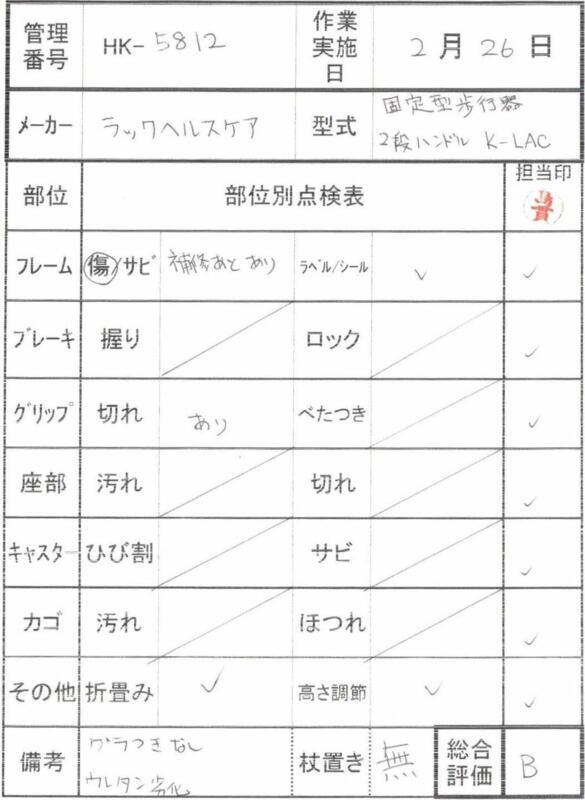 管理番号 HK-5812 作業実施日 2月26日
メーカー ラックヘルスケア 型式 固定型歩行器
2段ハンドル K-LAC
部位 部位別点検表 担当印
フレーム 傷/サビ 補修あと あり ラベル/シール ✓ ✓
ブレーキ 握り ロック ✓
グリップ 切れ あり べたつき ✓
座部 汚れ 切れ ✓
キャスター ひび割 サビ ✓
カゴ 汚れ ほつれ ✓
その他 折畳み ✓ 高さ調節 ✓ ✓
備考 グラつきなし
ウレタン劣化
杖置き 無 総合評価 B